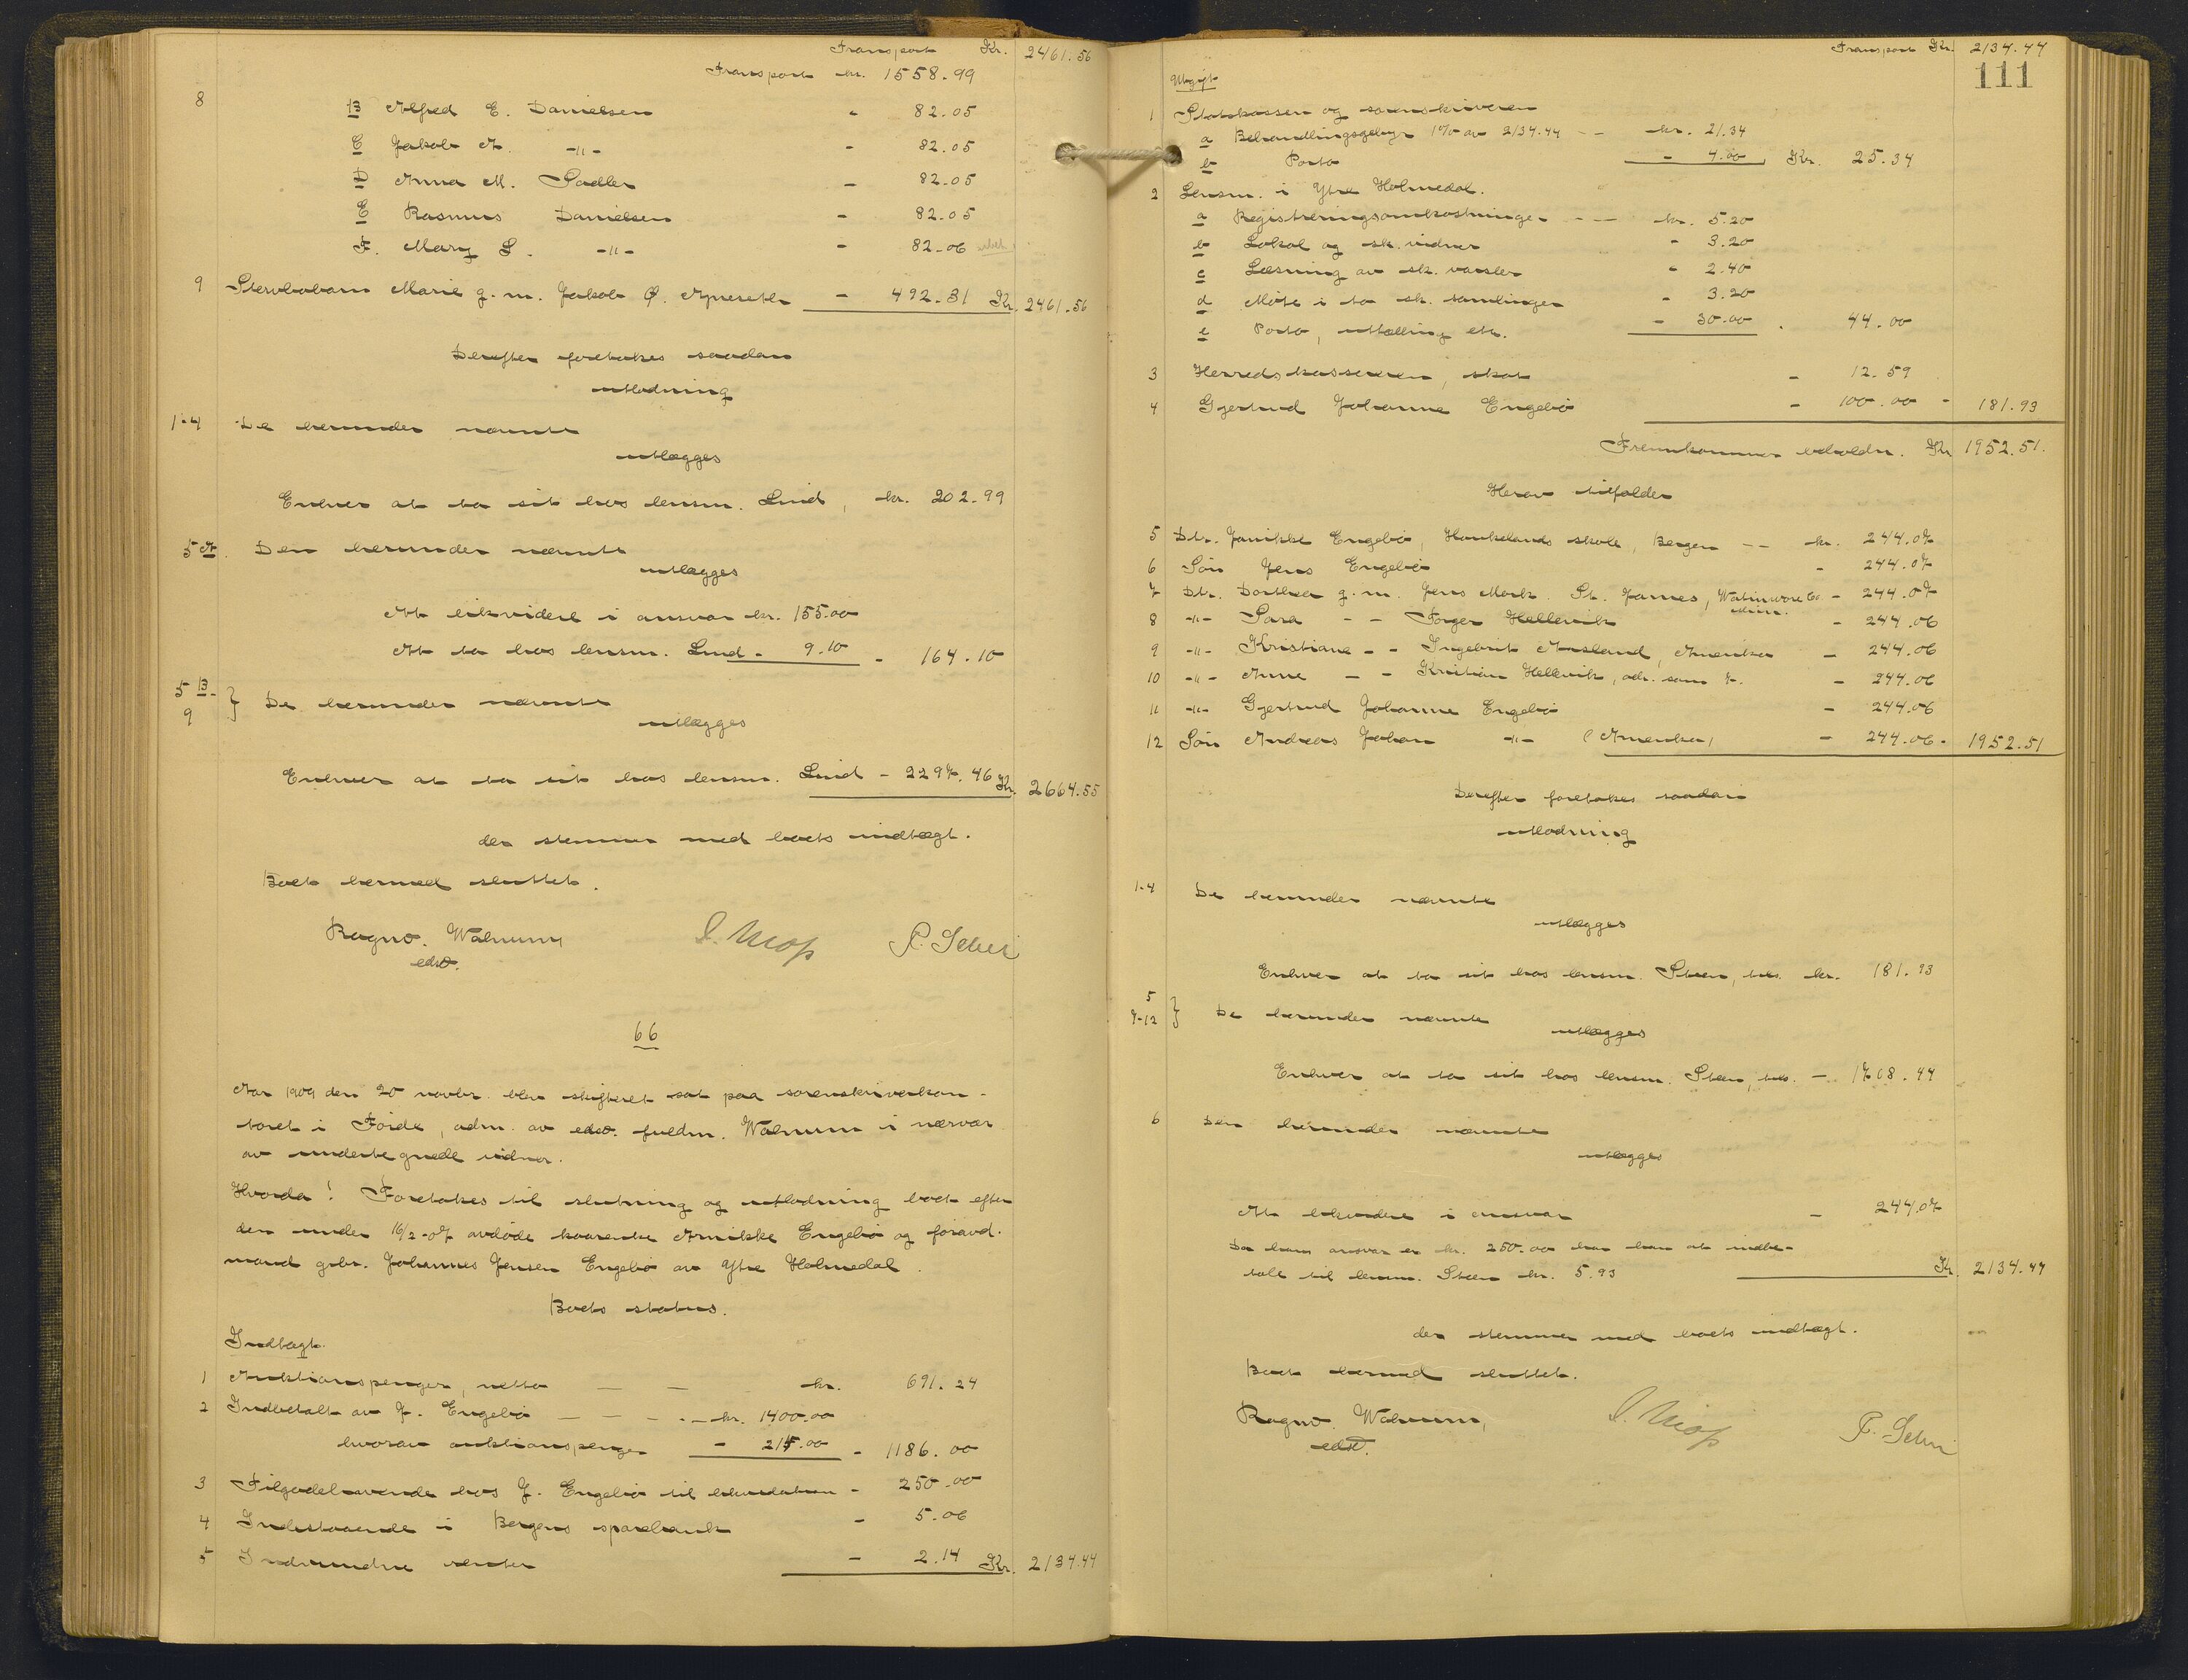 Transport Kr. 2461.56
Transport kr. 1558.99
8 B Alfred E. Danielsen - 82.05
C Jakob A. -"- - 82.05
D Anna M. Sadler - 82.05
E Rasmus Danielsen - 82.05
F. Mary L. -"- - 82.06
9 Stervbobarn Marie g. m. Jakob Ø. - 492.31 Kr. 2461.56
Derefter foretokes saadan
utlodning
1-4 De herunder nævnte
utlægges
Enhver at ta sit hos lensm. Lind, kr. 202.99
5 A. Den herunder nævnte
utlægges
At likvidere i ansvar kr. 155.00
At ta hos lensm. Lind - 9.10 - 164.10
5 B-
9 } De herunder nævnte
utlægges
Enhver at ta sit hos lensm. Lind - 2297.46 Kr. 2664.55
der stemmer med boets indtægt.
Boet hermed sluttet.
Ragnv. Walnum
edsv.
66
Aar 1909 den 20 novbr. blev skifteret sat paa sorenskriverkon-
toret i Førde, adm. av edsv. fuldm. Walnum i nærvær
av undertegnede vidner.
Hvorda! Foretokes til slutning og utlodning boet efter
den under 16/2-07 avdøde kaarenke Anikke Engebø og foravd.
mand gbr. Johannes Jensen Engebø av Ytre Holmedal.
Boets status.
Indtægt.
1 Auktionspenger, netto — — kr. 691.24
2 Indbetalt av J. Engebø — — - - kr. 1400.00
hvorav auktionspenger - 214.00 - 1186.00
3 Tilgodehavende hos J. Engebø til likvidation - 250.00
4 Indestaaende i Bergens sparebank - 5.06
5 Indvundne renter - 2.14 Kr. 2134.44
Transport Kr. 2134.44
111
Utgift
1 Statskassen og sorenskriveren
a Behandlingsgebyr 1% av 2134.44 - - kr. 21.34
b Porto - 4.00 Kr. 25.34
2 Lensm. i Ytre Holmedal.
a Registreringsomkostninger - - kr. 5.20
b Lokal og sk. vidner - 3.20
c Læsning av sk. varsler - 2.40
d Møte i to sk. samlinger - 3.20
e Porto, uttælling etc. - 30.00 . 44.00
3 Herredskassereren, skat - 12.59
4 Gjertrud Johanne Engebø - 100.00 - 181.93
Fremkommer beholdn. Kr. 1952.51.
Herav tilfalder
5 Dtr. Janikke Engebø, Haukelands skole, Bergen - - kr. 244.07
6 Søn Jens Engebø - 244.07
7 Dtr. Dorthea g. m. Jens Mork. St. James, Watinwore Co. - 244.07
Minn.
8 -"- Sara - - Torger Hellevik - 244.06
9 -"- Kristiane - - Ingebrit Aasland, Amerika - 244.06
10 -"- Anne - - Kristian Hellevik, adr. som 7. - 244.06
11 -"- Gjertrud Johanne Engebø - 244.06
12 Søn Andreas Johan -"- (Amerika) - 244.06 - 1952.51
Derefter foretokes saadan
utlodning
1-4 De herunder nævnte
utlægges
Enhver at ta sit hos lensm. Steen, kr. 181.93
5
7-12 } De herunder nævnte
utlægges
Enhver at ta sit hos lensm. Steen, - 1708.44
6 Den herunder nævnte
utlægges
At likvidere i ansvar - 244.07
Da hans ansvar er kr. 250.00 har han at indbe-
tale til lensm. Steen kr. 5.93 Kr. 2134.44
der stemmer med boets indtægt.
Boet hermed sluttet.
Ragnv. Walnum,
edsv.